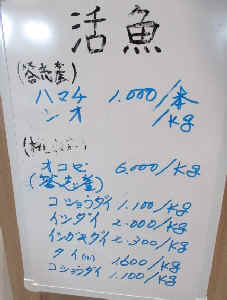 活魚
(答志産)
ハマチ 1.000/本
シオ /kg
オコゼ 6.000/kg
(答志産)
コショウダイ 1.100/kg
イシダイ 2.000/kg
イシガキダイ 2.300/kg
タイ 1.600/kg
コショウダイ 1.100/kg